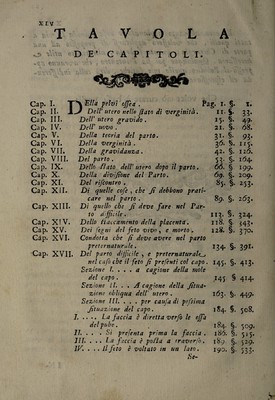 XIV
TAVOLA
DE' CAPITOLI.
Cap. I. DElla pelvi ossea. Pag. 1. §. 1.
Cap. II. Dell' utero nello stato di verginità. 11. §. 33.
Cap. III. Dell' utero gravido. 15. §. 49.
Cap. IV. Dell' uovo. 21. §. 68.
Cap. V. Della teoria del parto. 31. §. 93.
Cap. VI. Della verginità. 36. §. 115.
Cap. VII. Della gravidanza. 42. §. 126.
Cap. VIII. Del parto. 53. §. 164.
Cap. IX. Dello stato dell' utero dopo il parto. 66. §. 199.
Cap. X. Della divisione del Parto. 69. §. 209.
Cap. XI. Del riscontro. 85. §. 253.
Cap. XII. Di quelle cose, che si debbono prati-
care nel parto. 89. §. 263.
Cap. XIII. Di quello che si deve fare nel Par-
to difficile. 113. §. 324.
Cap. XIV. Dello staccamento della placenta. 118 §. 343.
Cap. XV. Dei segni del feto vivo, e morto. 128. §. 370.
Cap. XVI. Condotta che si deve avere nel parto
preternaturale. 134. §. 391.
Cap. XVII. Del parto difficile, e preternaturale,
nel caso che il feto si presenti col capo. 145. §. 413.
Sezione I. . . . a cagione della mole
del capo. 145 §. 414.
Sezione II. . . A cagione della situa-
zione obliqua dell' utero. 163. §. 449.
Sezione III. . . . per causa di pessima
situazione del capo. 184. §. 508.
I. . . . La faccia è diretta verso le ossa
del pube. 184. §. 509.
II. . . . Si presenta prima la faccia. 186. §. 515.
III. . . . La faccia è posta a traverso. 189 §. 529.
IV. . . . Il feto è voltato in un lato. 190. §. 533.
Se-